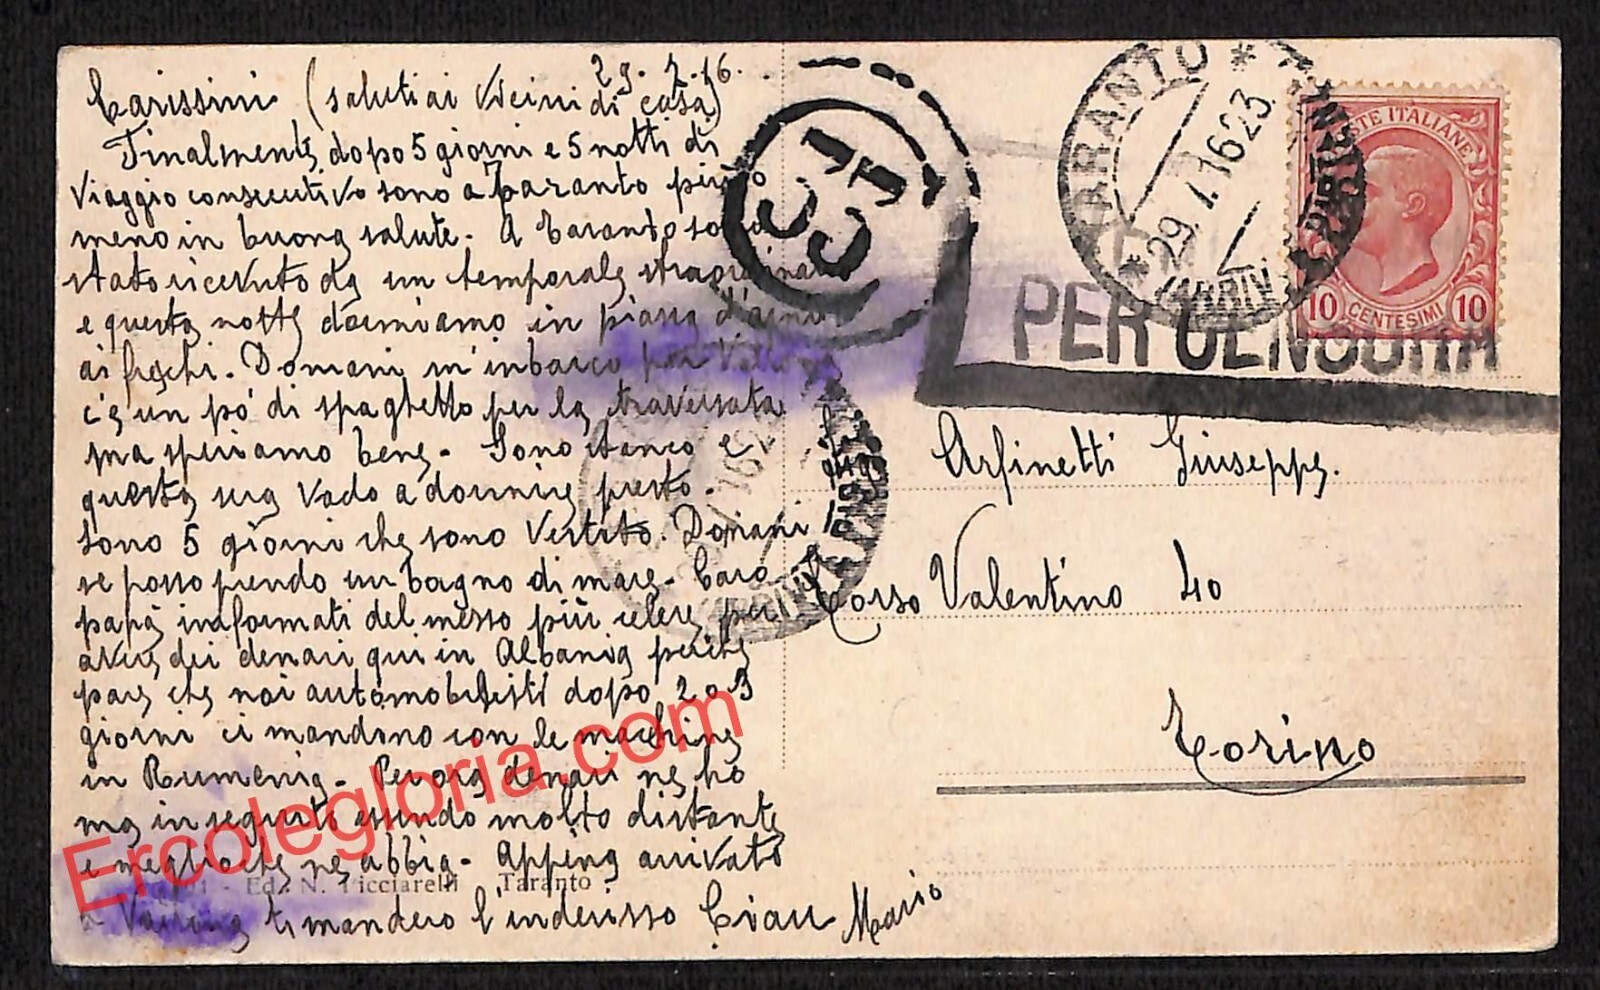 29.7.16.
Carissimi (saluti ai Vicini di casa)
Finalmente dopo 5 giorni e 5 notti di
viaggio consecutivo sono a Taranto più o
meno in buona salute. A Taranto sono
stato ricevuto da un temporale straordinario
e questa notte dormiamo in piazza d'armi
ai freschi. Domani m'inbarco per Vallona
c'è un pò di spaghetto per la traversata
ma speriamo bene. Sono stanco e
questa sera vado a dormire presto.
Sono 5 giorni che sono vestito. Domani
se posso prendo un bagno di mare. Caro
papà informati del messo più celere per
avere dei denari qui in Albania perchè
pare che noi automobilisti dopo 2 o 3
giorni ci mandono con le macchine
in Rumenia. Per ora denari ne ho
ma in seguito essendo molto distante
è meglio che ne abbia. Appena arrivato
a Vallona ti manderò l'inderisso Ciau Mario
Ed. N. Picciarelli - Taranto
TARANTO
29.7.1623
ARRIVI
POSTE ITALIANE
10 CENTESIMI 10
PER CENSURA
Arfinetti Giuseppe.
Corso Valentino 40
Torino
Ercolegloria.com